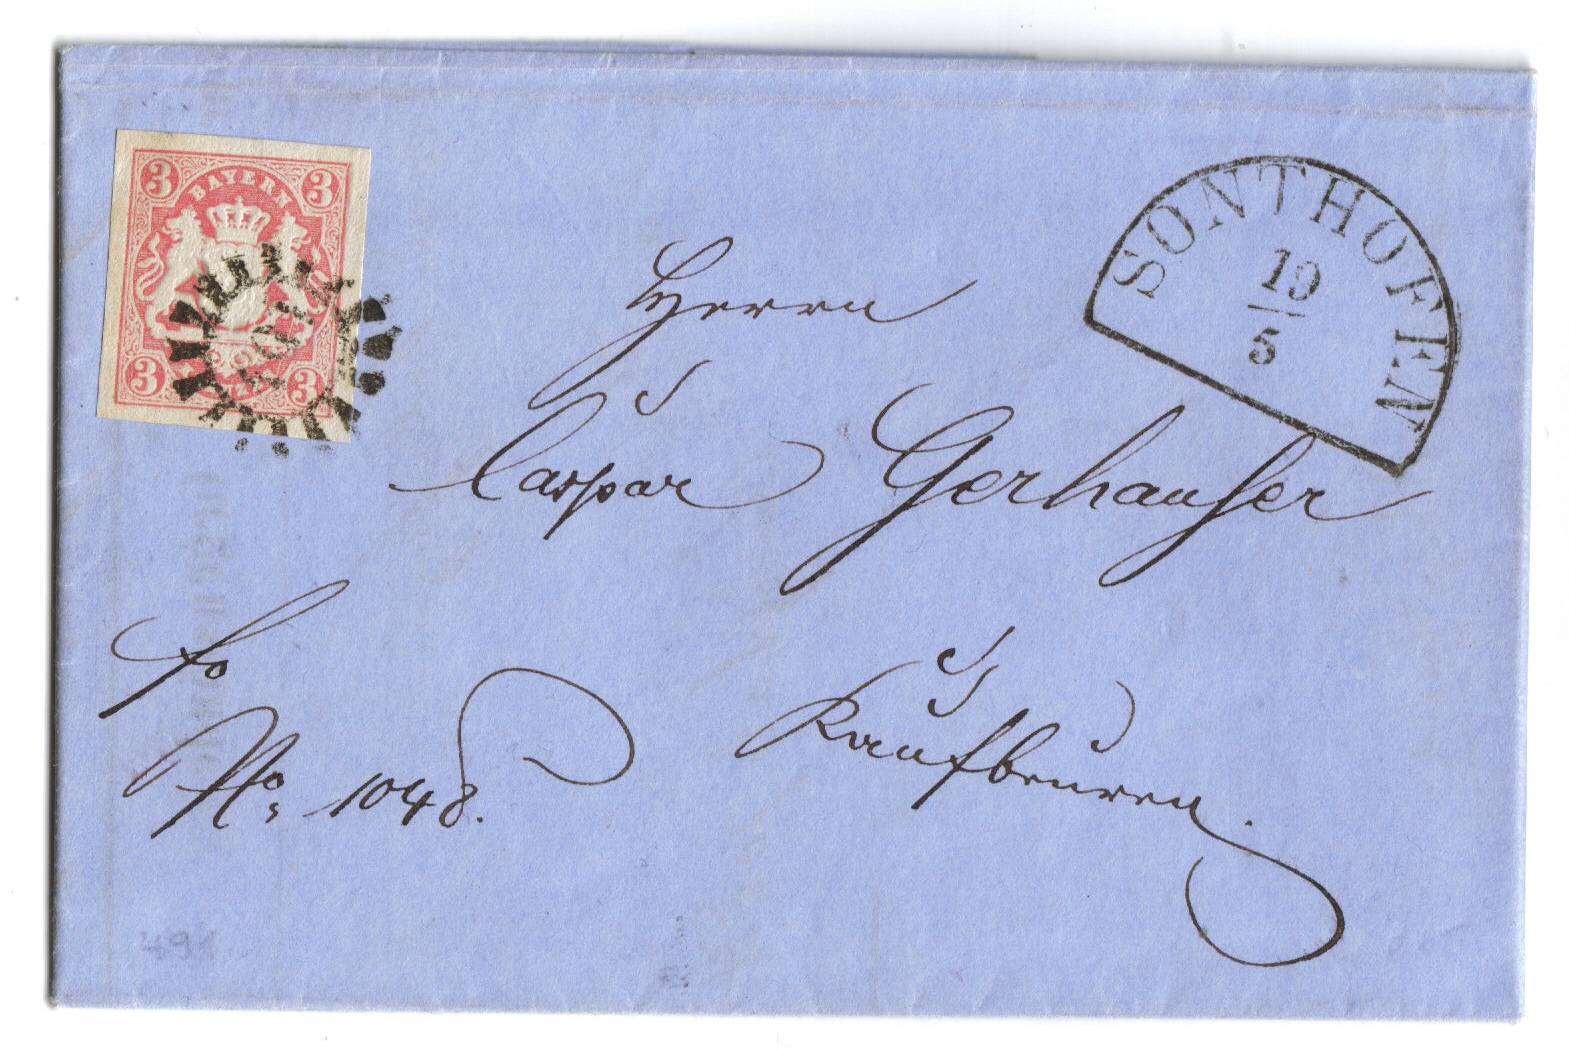 3 BAYERN 3
3 3
SONTHOFEN
19
5
Herrn
Caspar Gerhauser
in
Kaufbeuren.
fo
No. 1048.
491